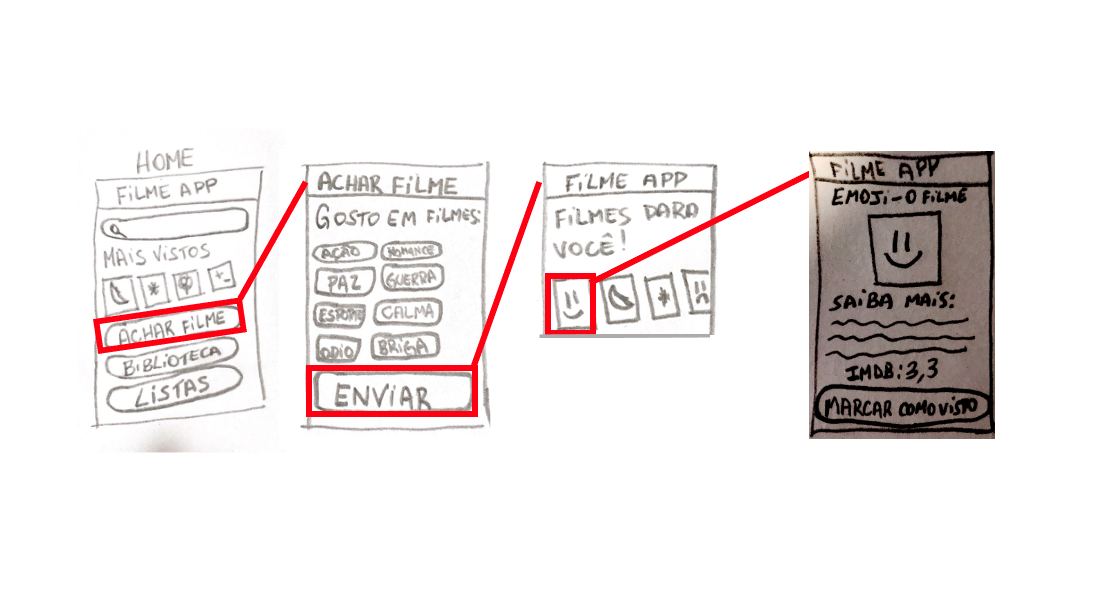 HOME
FILME APP
MAIS VISTOS
ACHAR FILME
BIBLIOTECA
LISTAS
ACHAR FILME
GOSTO EM FILMES:
AÇÃO ROMANCE
PAZ GUERRA
CALMA
ODIO BRIGA
ENVIAR
FILME APP
FILMES PARA
VOCÊ!
FILME APP
EMOJI-O FILME
SAIBA MAIS:
IMDB:3,3
MARCAR COMO VISTO